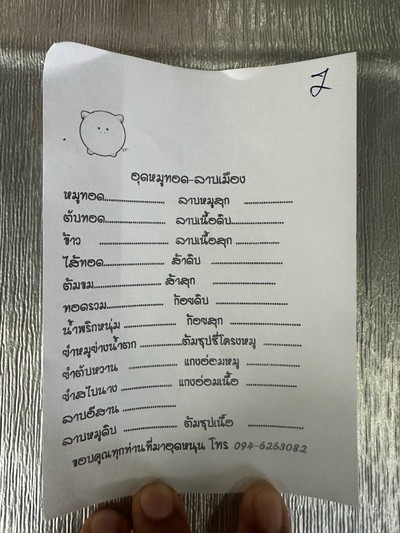 อุดหมูทอด-ลาบเมือง
หมูทอด.................... ลาบหมูสุก ....................
ตับทอด.................... ลาบเนื้อดิบ....................
ข้าว .................... ลาบเนื้อสุก ....................
ไส้ทอด.................... ส้าดิบ ....................
ต้มขม.................... ส้าสุก ....................
ทอดรวม.................... ก้อยดิบ ....................
น้ำพริกหนุ่ม .................... ก้อยสุก ....................
ยำหมูย่างน้ำตก ....................ต้มซุปซี่โครงหมู ....................
ยำตับหวาน .................... แกงอ่อมหมู ....................
ยำสไบนาง .................... แกงอ่อมเนื้อ ....................
ลาบอีสาน ....................
ลาบหมูดิบ .................... ต้มซุปเนื้อ ....................
ขอบคุณทุกท่านที่มาอุดหนุน โทร 094-6263082